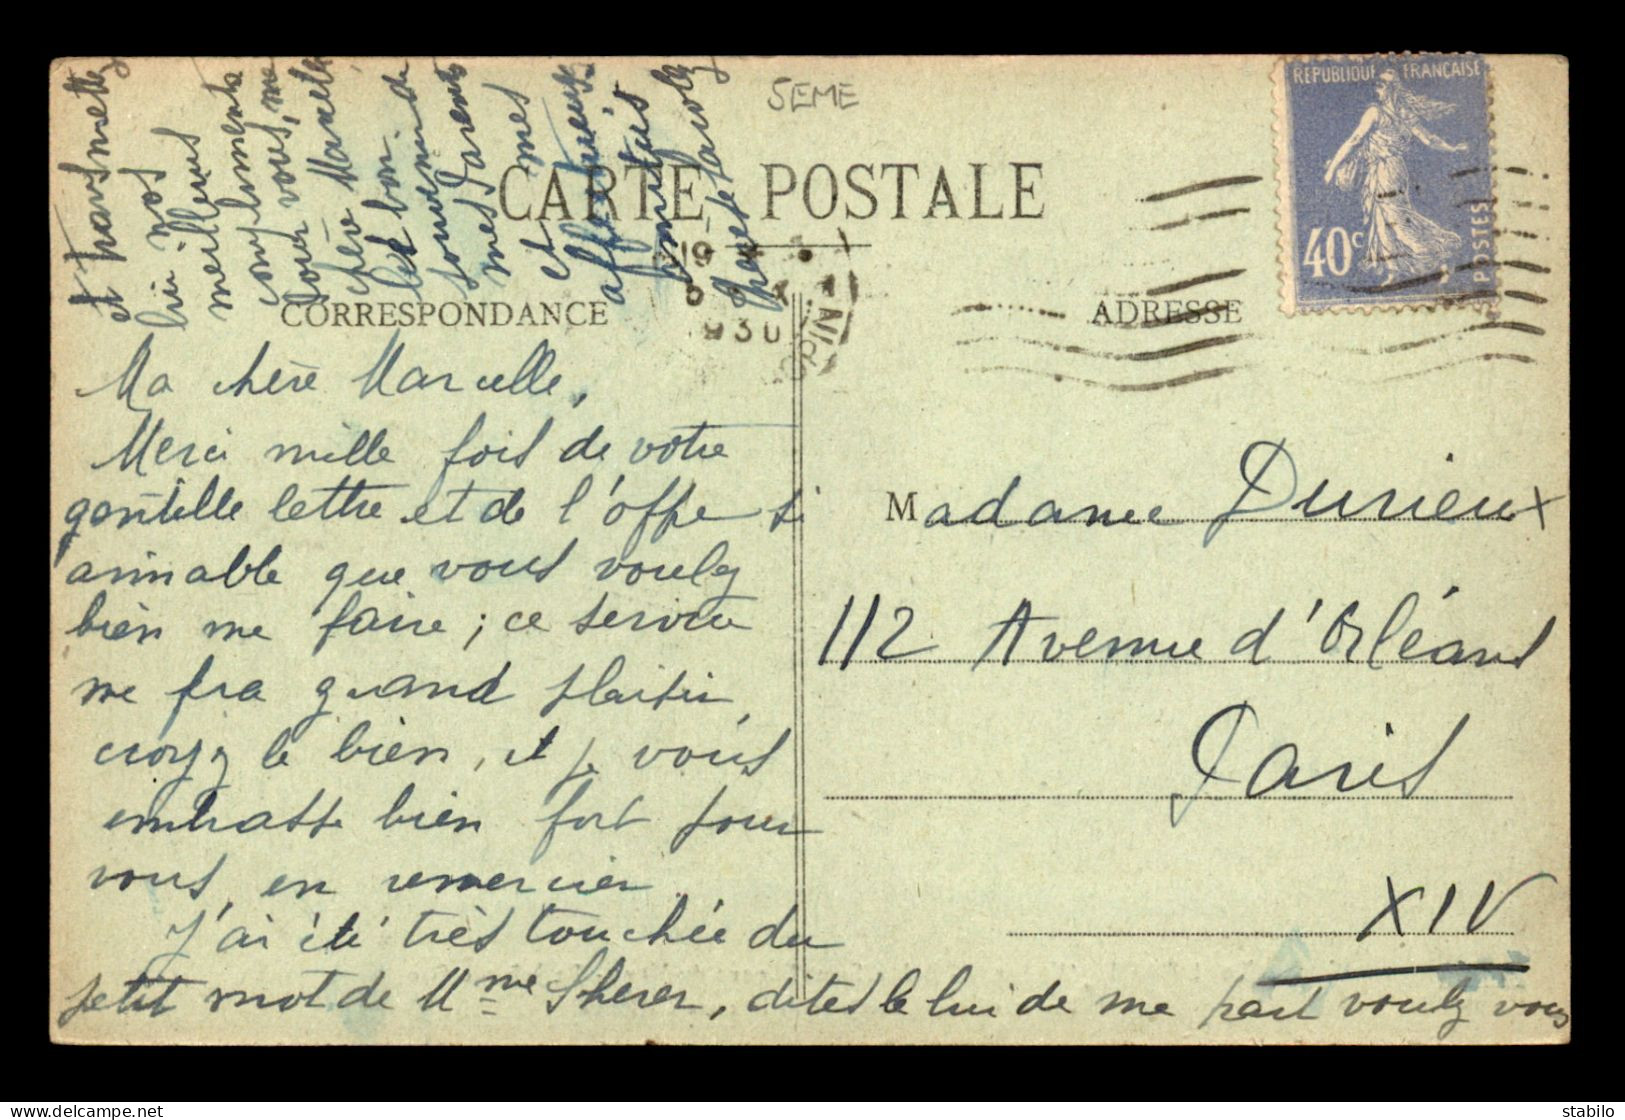 5EME
RÉPUBLIQUE FRANÇAISE
40c
POSTES
CARTE POSTALE
CORRESPONDANCE
ADRESSE
19
930
Ma chère Marcelle,
Merci mille fois de votre
gentille lettre et de l'offre si
aimable que vous voulez
bien me faire ; ce service
me fra grand plaisir,
croyez le bien, et je vous
embrasse bien fort pour
vous en remercier.
J'ai été très touchée du
petit mot de Mme Sherer, dites le lui de ma part voulez vous
et transmettez
lui nos
meilleurs
compliments
Pour vous, ma
chère Marcelle
les bon
souvenirs de
mes Parents
et mes
affectueuses
amitiés
Madame Durieux
112 Avenue d'Orléans
Paris
XIV
stabilo